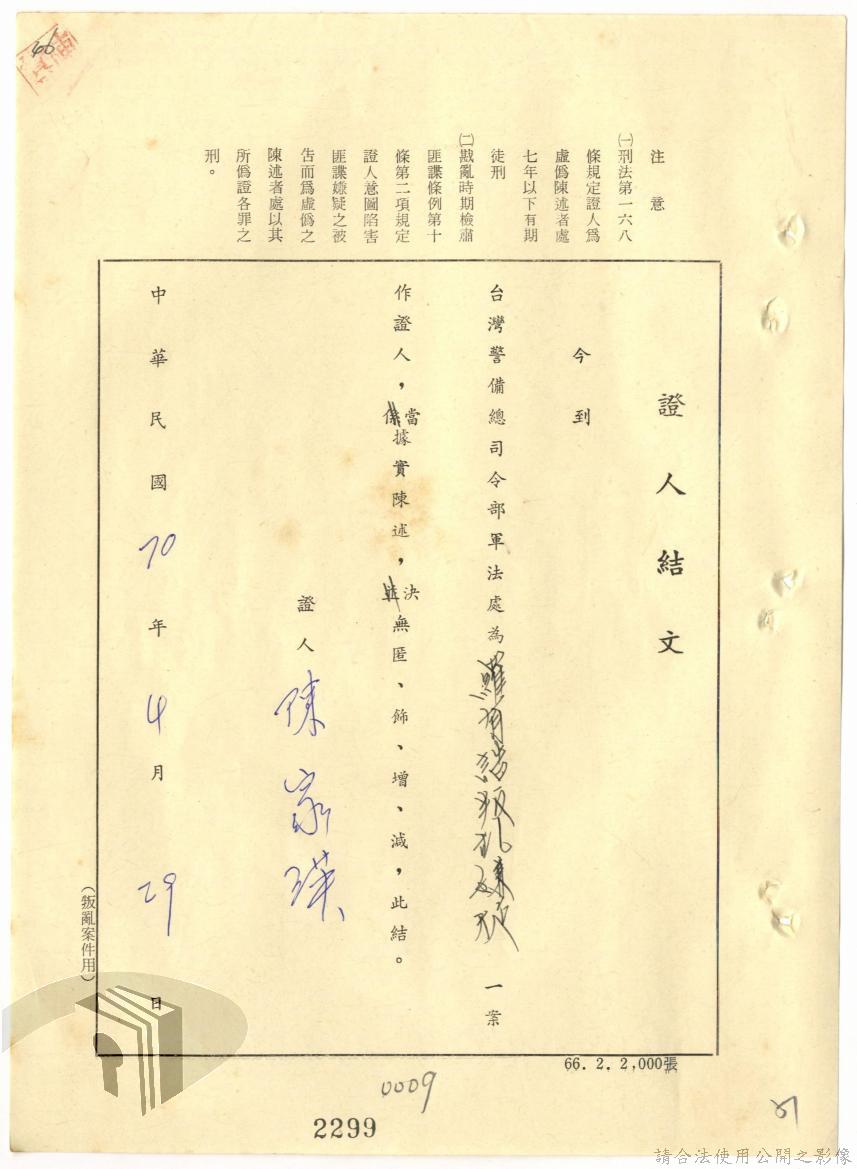 46
注意
㈠刑法第一六八
條規定證人為
虛偽陳述者處
七年以下有期
徒刑
㈡戡亂時期檢肅
匪諜條例第十
條第二項規定
證人意圖陷害
匪諜嫌疑之被
告而為虛偽之
陳述者處以其
所偽證各罪之
刑。
證人結文
今到
台灣警備總司令部軍法處為 叛亂 一案
作證人，當據實陳述，決無匿、飾、增、減，此結。
證人 陳家瑛
中華民國70年4月29日
（叛亂案件用）
66. 2. 2,000張
0009
2299
請合法使用公開之影像